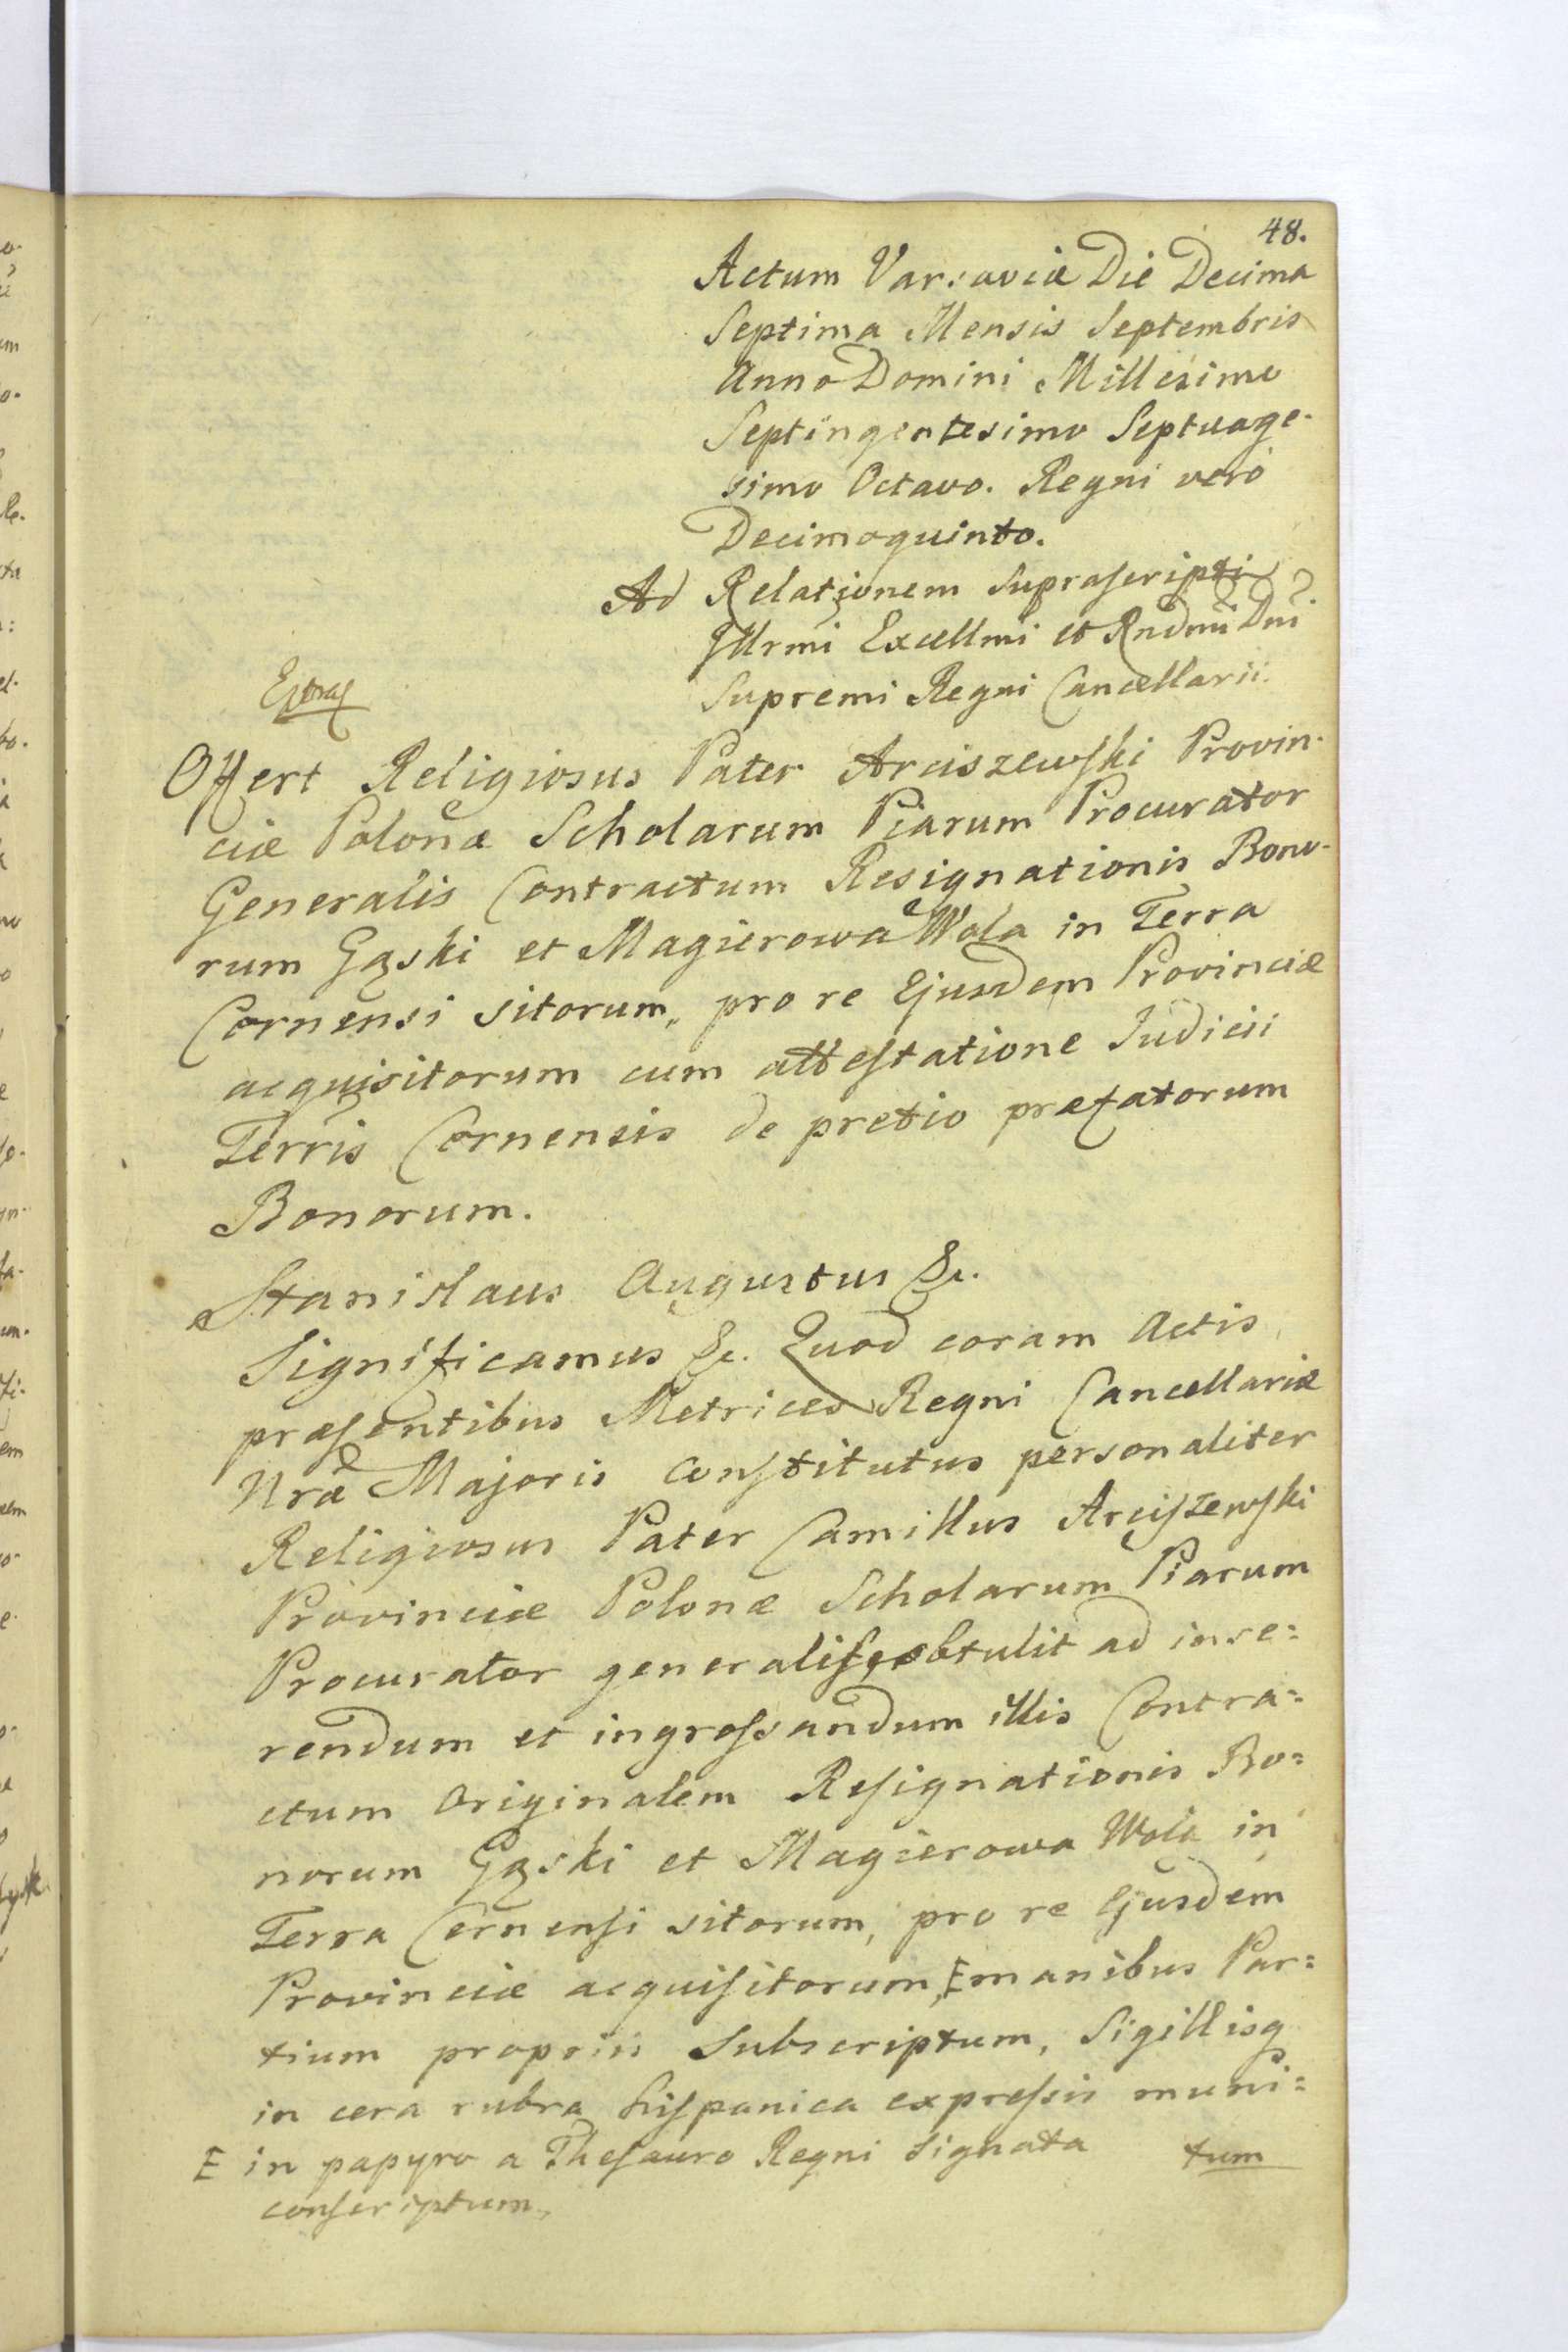 48.
Actum Varsaviæ Die Decima
Septima Mensis Septembris
Anno Domini Millesimo
Septingentesimo Septuage-
simo Octavo. Regni verò
Decimoquinto.
Ad Relationem suprascripti
Illrmi Excellmi et Rndmi Dni
Supremi Regni Cancellarii.
Offert Religiosus Pater Arciszewski Provin-
ciæ Polonæ Scholarum Piarum Procurator
Generalis Contractum Resignationis Bono-
rum Gąski et Magierowa Wola in Terra
Cernensi sitorum, pro re Ejusdem Provinciæ
acquisitorum cum attestatione Judicii
Terris Cernensis de pretio præfatorum
Bonorum.
Stanislaus Augustus &c.
Significamus &c. Quod coram Actis
præsentibus Metrices Regni Cancellariæ
Nræ Majoris constitutus personaliter
Religiosus Pater Camillus Arciszewski
Provinciæ Polonæ Scholarum Piarum
Procurator generalis, obtulit ad inse=
rendum et ingrossandum illis Contra=
ctum Originalem Resignationis Bo=
norum Gąski et Magierowa Wola in
Terra Cernensi sitorum, pro re Ejusdem
Provinciæ acquisitorum, E manibus Par=
tium propriis Subscriptum, Sigillisq
in cera rubra hispanica expressis muni=
E in papyro a Thesauro Regni signata tum
conscriptum,